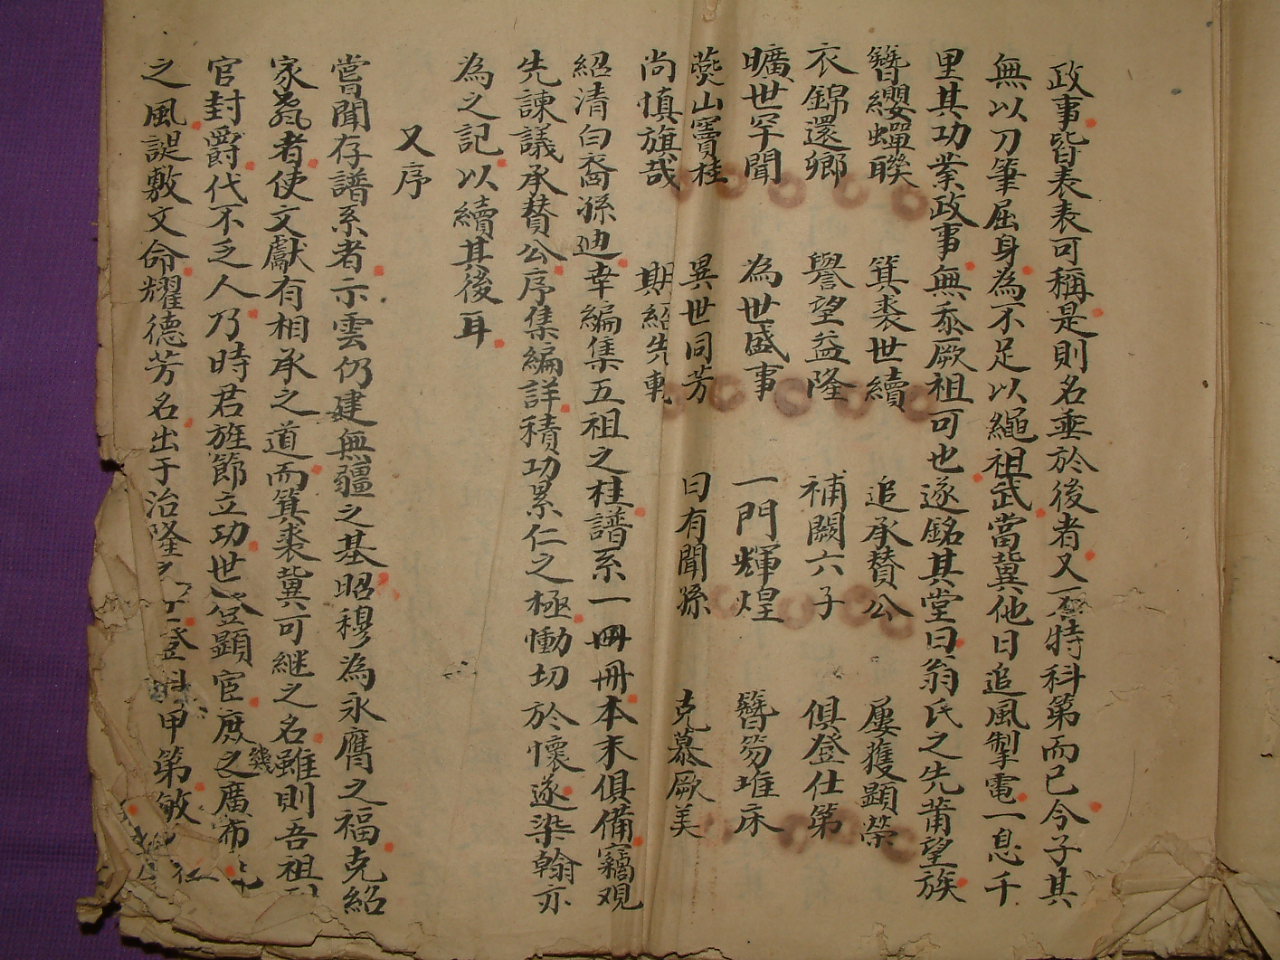 政事皆表表可稱是則名垂於後者又不特科第而已今子其
無以刀筆屈身為不足以繩祖武當冀他日追風掣電一息千
里其功業政事無忝厥祖可也遂銘其堂曰翁氏之先莆望族
簪纓蟬聯 箕裘世續 追承贊公 屢獲顯榮
衣錦還鄉 譽望益隆 補闕六子 俱登仕第
曠世罕聞 為世盛事 一門輝煌 簪笏堆床
燕山竇桂 異世同芳 曰有聞孫 克慕厥美
尚慎旃哉 期紹先軌
紹清白裔孫迪幸編集五祖之桂譜系一冊冊本末俱備竊观
先諫議承贊公序集編詳積功累仁之極慟切於懷遂染翰亦
為之記以續其後耳
又序
嘗聞存譜系者示雲仍建無疆之基昭穆為永膺之福克紹
家者使文獻有相承之道而箕裘冀可継之名雖則吾祖
官封爵代不乏人乃時君旌節立功世登顯宦庶之廣布
之風誕敷文命耀德芳名出于治隆登科甲第敏